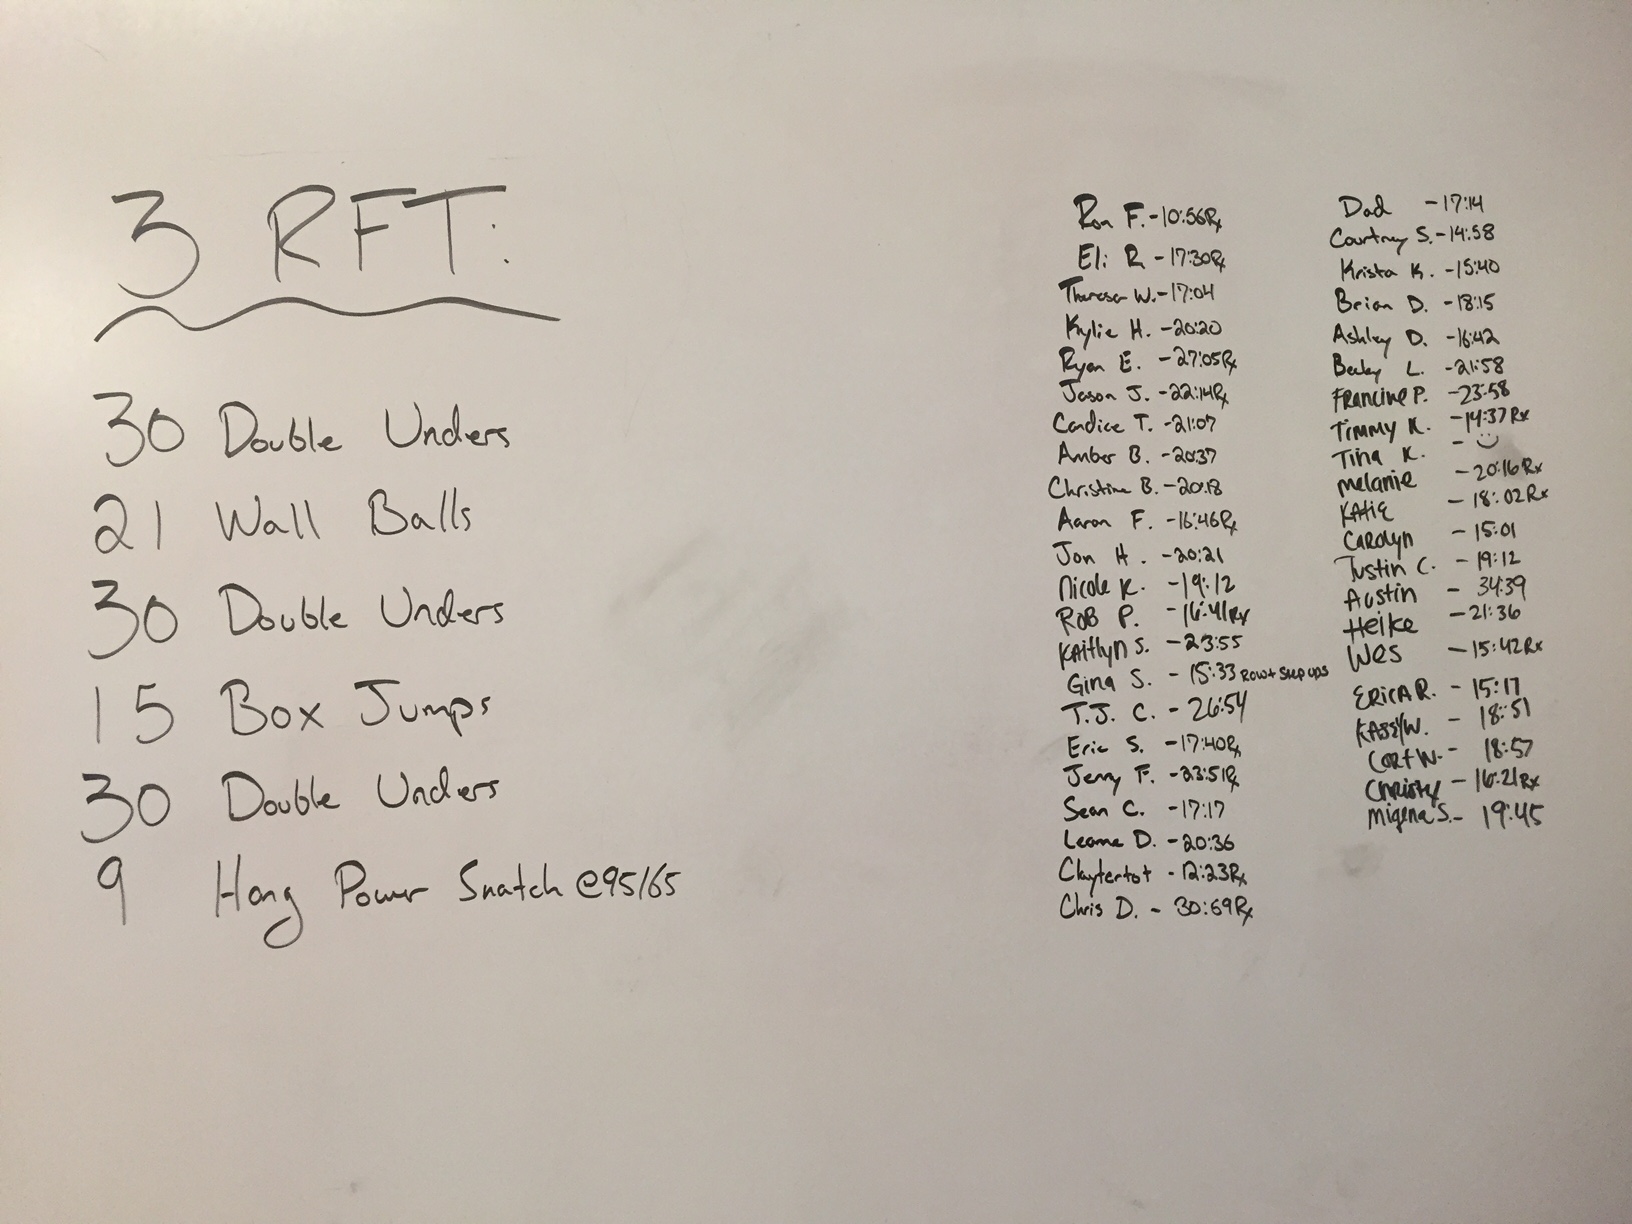 3 RFT:
30 Double Unders
21 Wall Balls
30 Double Unders
15 Box Jumps
30 Double Unders
9 Hang Power Snatch @95/65
Ron F. - 10:56Rx
Eli R - 17:30Rx
Theresa W. - 17:04
Kylie H. - 20:20
Ryan E. - 27:05Rx
Jason J. - 22:14Rx
Candice T. - 21:07
Amber B. - 20:37
Christina B. - 20:18
Aaron F. - 16:46Rx
Jon H. - 20:21
Nicole K. - 19:12
ROB P. - 16:41Rx
KAitlyn S. - 23:55
Gina S. - 15:33 Row + Step ups
T.J. C. - 26:54
Eric S. - 17:40Rx
Jerry F. - 23:51Rx
Sean C. - 17:17
Leanne D. - 20:36
Claytertot - 12:23Rx
Chris D. - 30:69Rx
Dad - 17:14
Courtney S. - 14:58
Krista K. - 15:40
Brian D. - 18:15
Ashley D. - 16:42
Becky L. - 21:58
FRancine P. - 23:58
Timmy K. - 14:37Rx
Tina K. - 
melanie - 20:16Rx
KAtie - 18:02Rx
CAROlyn - 15:01
Justin C. - 19:12
Austin - 34:39
Heike - 21:36
Wes - 15:42Rx
ERICA R. - 15:17
W. - 18:51
CORt W. - 18:57
Christy - 16:21Rx
Migena S. - 19:45